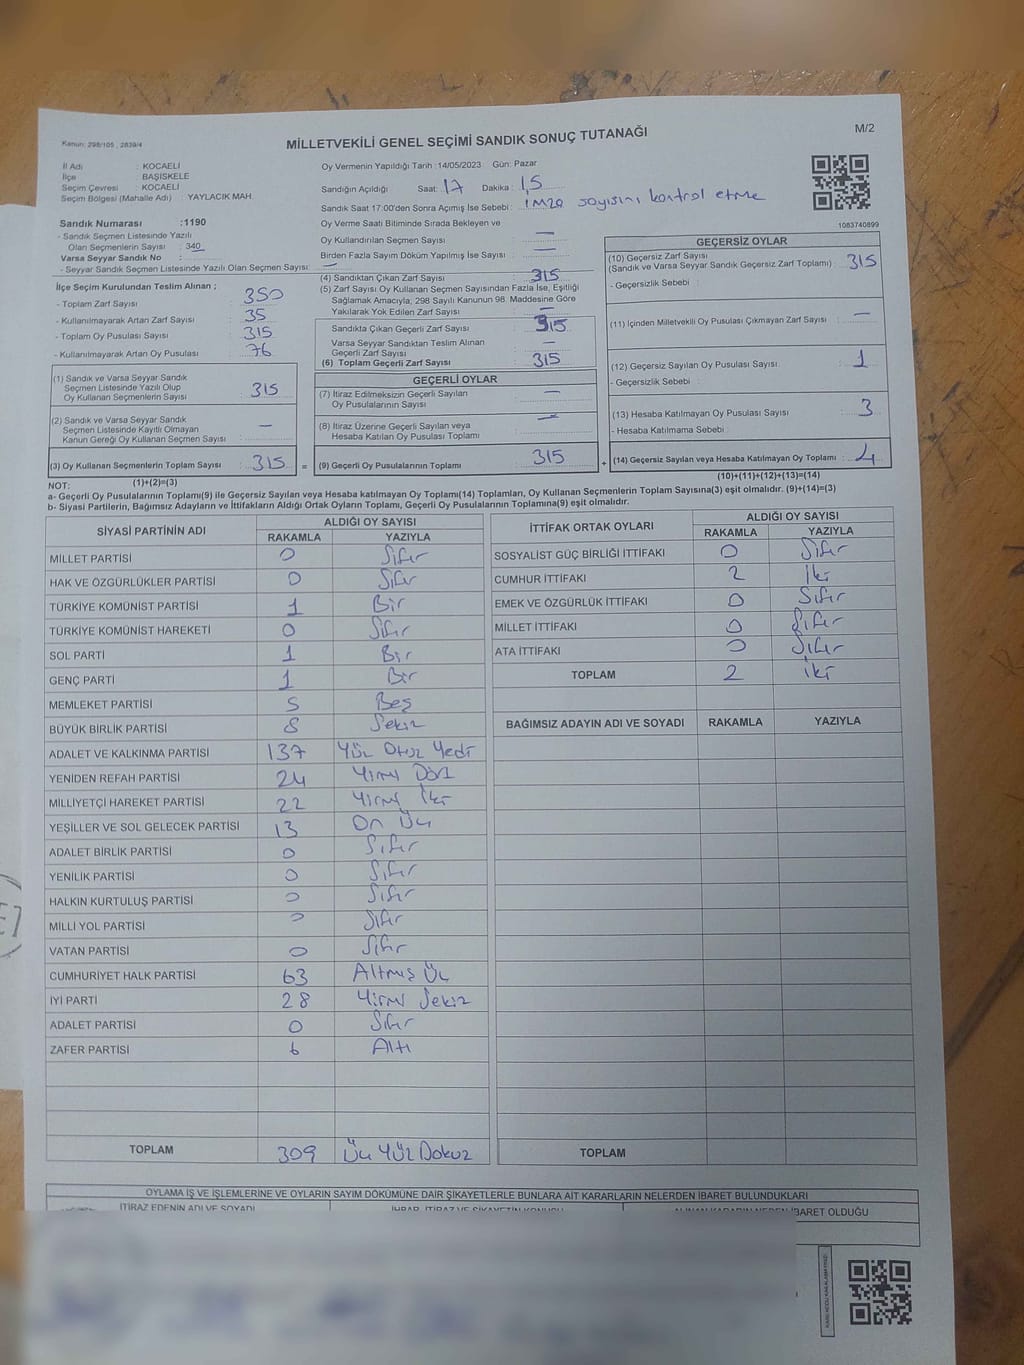 Kanun: 298/105 ; 2839/4
MİLLETVEKİLİ GENEL SEÇİMİ SANDIK SONUÇ TUTANAĞI
M/2
İl Adı : KOCAELİ
İlçe : BAŞİSKELE
Seçim Çevresi : KOCAELİ
Seçim Bölgesi (Mahalle Adı) YAYLACIK MAH.
Oy Vermenin Yapıldığı Tarih :14/05/2023 Gün: Pazar
Sandığın Açıldığı Saat: 17 Dakika: 15
Sandık Saat 17:00'den Sonra Açılmış İse Sebebi : İmza sayısını kontrol etme
1083740899
Sandık Numarası :1190
- Sandık Seçmen Listesinde Yazılı
Olan Seçmenlerin Sayısı : 340
Varsa Seyyar Sandık No :
- Seyyar Sandık Seçmen Listesinde Yazılı Olan Seçmen Sayısı: —
Oy Verme Saati Bitiminde Sırada Bekleyen ve
Oy Kullandırılan Seçmen Sayısı : —
Birden Fazla Sayım Döküm Yapılmış İse Sayısı : —
İlçe Seçim Kurulundan Teslim Alınan ;
- Toplam Zarf Sayısı : 350
- Kullanılmayarak Artan Zarf Sayısı : 35
- Toplam Oy Pusulası Sayısı : 315
- Kullanılmayarak Artan Oy Pusulası : 76
(1) Sandık ve Varsa Seyyar Sandık
Seçmen Listesinde Yazılı Olup
Oy Kullanan Seçmenlerin Sayısı : 315
(2) Sandık ve Varsa Seyyar Sandık
Seçmen Listesinde Kayıtlı Olmayan
Kanun Gereği Oy Kullanan Seçmen Sayısı : —
(3) Oy Kullanan Seçmenlerin Toplam Sayısı : 315
(1)+(2)=(3)
(4) Sandıktan Çıkan Zarf Sayısı : 315
(5) Zarf Sayısı Oy Kullanan Seçmen Sayısından Fazla İse, Eşitliği
Sağlamak Amacıyla, 298 Sayılı Kanunun 98. Maddesine Göre
Yakılarak Yok Edilen Zarf Sayısı : —
Sandıkta Çıkan Geçerli Zarf Sayısı : 315
Varsa Seyyar Sandıktan Teslim Alınan
Geçerli Zarf Sayısı : —
(6) Toplam Geçerli Zarf Sayısı : 315
GEÇERLİ OYLAR
(7) İtiraz Edilmeksizin Geçerli Sayılan
Oy Pusulalarının Sayısı : —
(8) İtiraz Üzerine Geçerli Sayılan veya
Hesaba Katılan Oy Pusulası Toplamı : —
= (9) Geçerli Oy Pusulalarının Toplamı : 315 +
GEÇERSİZ OYLAR
(10) Geçersiz Zarf Sayısı
(Sandık ve Varsa Seyyar Sandık Geçersiz Zarf Toplamı) : 315
- Geçersizlik Sebebi :
(11) İçinden Milletvekili Oy Pusulası Çıkmayan Zarf Sayısı : —
(12) Geçersiz Sayılan Oy Pusulası Sayısı : 1
- Geçersizlik Sebebi :
(13) Hesaba Katılmayan Oy Pusulası Sayısı : 3
- Hesaba Katılmama Sebebi :
(14) Geçersiz Sayılan veya Hesaba Katılmayan Oy Toplamı : 4
(10)+(11)+(12)+(13)=(14)
NOT:
a- Geçerli Oy Pusulalarının Toplamı(9) ile Geçersiz Sayılan veya Hesaba katılmayan Oy Toplamı(14) Toplamları, Oy Kullanan Seçmenlerin Toplam Sayısına(3) eşit olmalıdır. (9)+(14)=(3)
b- Siyasi Partilerin, Bağımsız Adayların ve İttifakların Aldığı Ortak Oyların Toplamı, Geçerli Oy Pusulalarının Toplamına(9) eşit olmalıdır.
SİYASİ PARTİNİN ADI ALDIĞI OY SAYISI
RAKAMLA YAZIYLA
MİLLET PARTİSİ 0 Sıfır
HAK VE ÖZGÜRLÜKLER PARTİSİ 0 Sıfır
TÜRKİYE KOMÜNİST PARTİSİ 1 Bir
TÜRKİYE KOMÜNİST HAREKETİ 0 Sıfır
SOL PARTİ 1 Bir
GENÇ PARTİ 1 Bir
MEMLEKET PARTİSİ 5 Beş
BÜYÜK BİRLİK PARTİSİ 8 Sekiz
ADALET VE KALKINMA PARTİSİ 137 Yüz Otuz Yedi
YENİDEN REFAH PARTİSİ 24 Yirmi Dört
MİLLİYETÇİ HAREKET PARTİSİ 22 Yirmi İki
YEŞİLLER VE SOL GELECEK PARTİSİ 13 On Üç
ADALET BİRLİK PARTİSİ 0 Sıfır
YENİLİK PARTİSİ 0 Sıfır
HALKIN KURTULUŞ PARTİSİ 0 Sıfır
MİLLİ YOL PARTİSİ 0 Sıfır
VATAN PARTİSİ 0 Sıfır
CUMHURİYET HALK PARTİSİ 63 Altmış Üç
İYİ PARTİ 28 Yirmi Sekiz
ADALET PARTİSİ 0 Sıfır
ZAFER PARTİSİ 6 Altı
TOPLAM 309 Üç Yüz Dokuz
İTTİFAK ORTAK OYLARI ALDIĞI OY SAYISI
RAKAMLA YAZIYLA
SOSYALİST GÜÇ BİRLİĞİ İTTİFAKI 0 Sıfır
CUMHUR İTTİFAKI 2 İki
EMEK VE ÖZGÜRLÜK İTTİFAKI 0 Sıfır
MİLLET İTTİFAKI 0 Sıfır
ATA İTTİFAKI 0 Sıfır
TOPLAM 2 İki
BAĞIMSIZ ADAYIN ADI VE SOYADI RAKAMLA YAZIYLA
TOPLAM
OYLAMA İŞ VE İŞLEMLERİNE VE OYLARIN SAYIM DÖKÜMÜNE DAİR ŞİKAYETLERLE BUNLARA AİT KARARLARIN NELERDEN İBARET BULUNDUKLARI
İTİRAZ EDENİN ADI VE SOYADI İHBAR, İTİRAZ VE ŞİKAYETİN KONUSU İBARET OLDUĞU